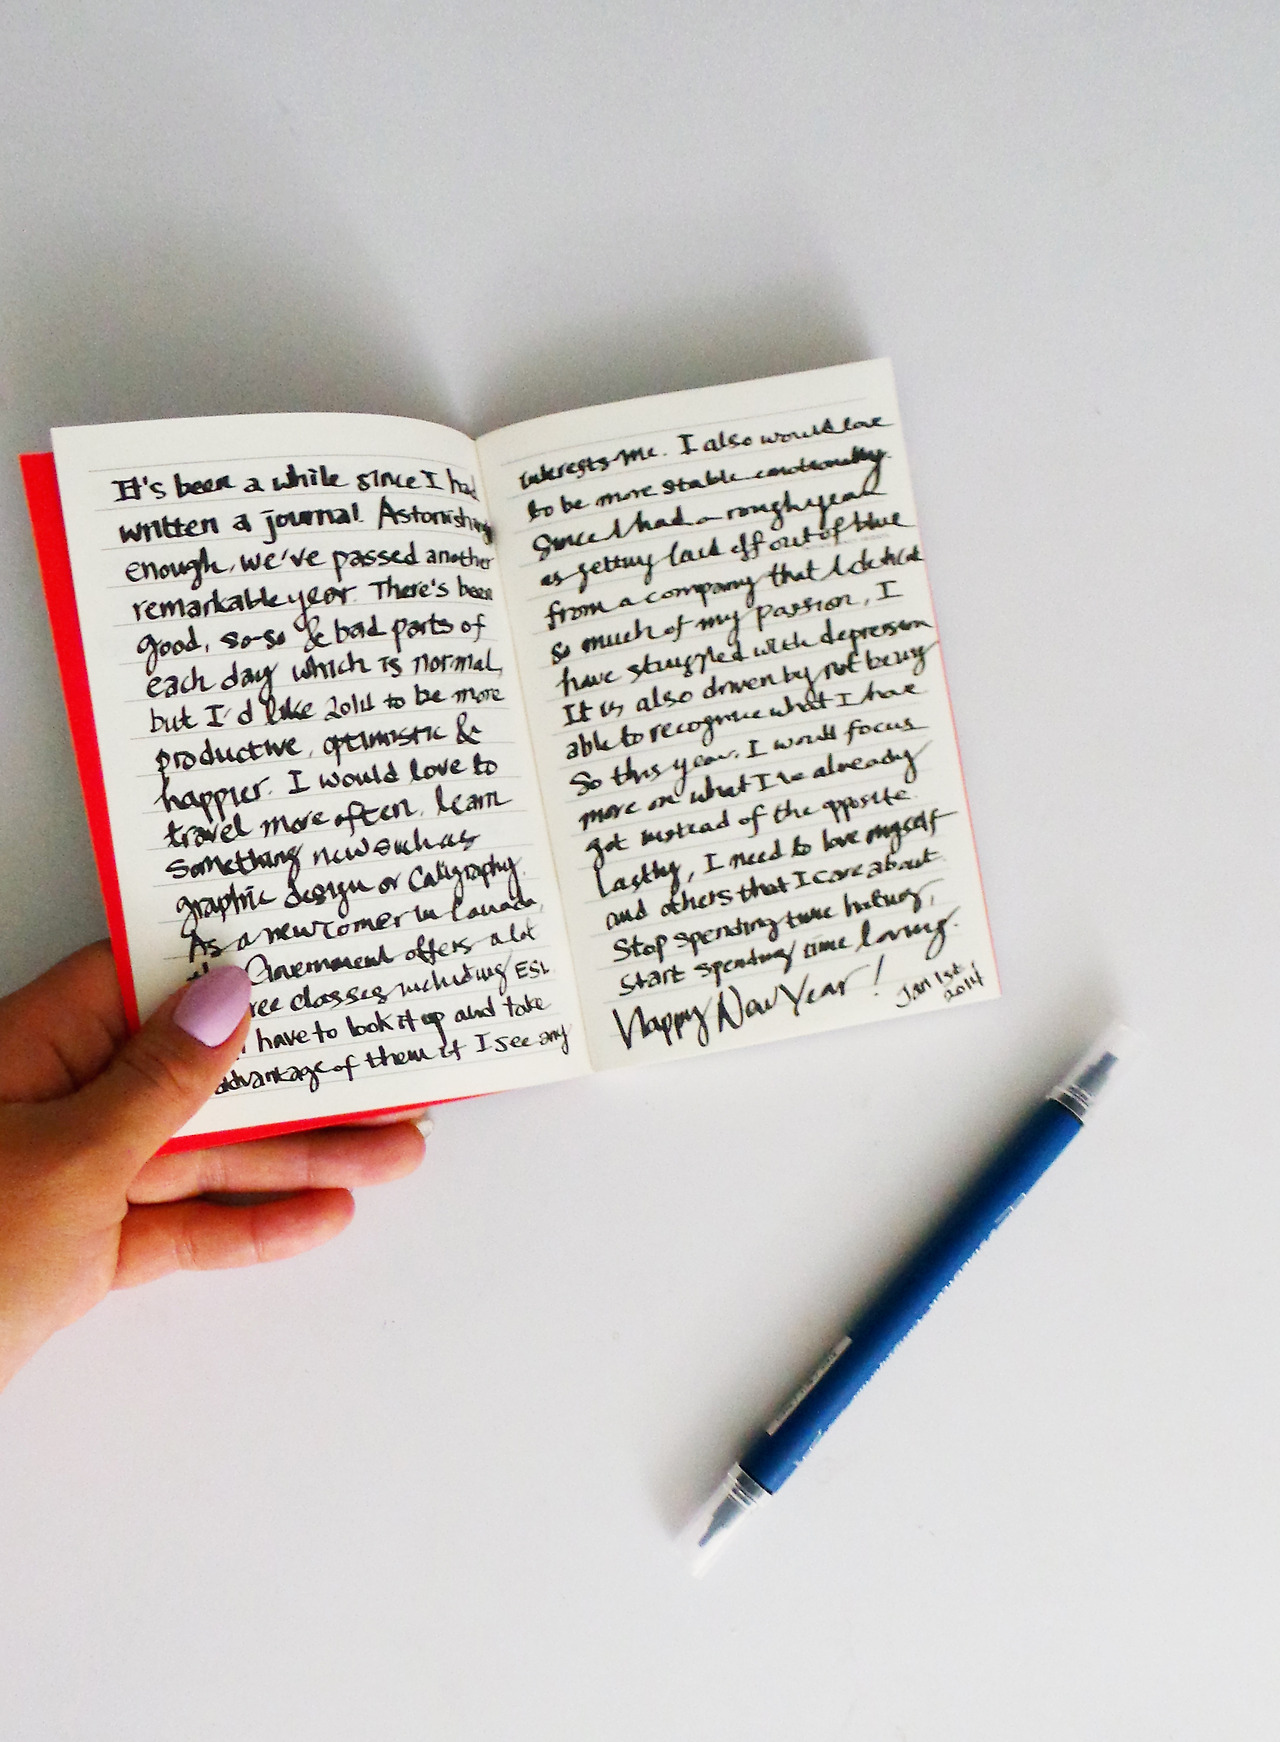 It's been a while since I had
written a journal. Astonishing
enough, we've passed another
remarkable year. There's been
good, so-so & bad parts of
each day which is normal,
but I'd like 2014 to be more
productive, optimistic &
happier. I would love to
travel more often, learn
something new such as
graphic design or Caligraphy.
As a newcomer in Canada,
the Government offers a lot
ree classes including ESL
have to look it up and take
advantage of them if I see any
interests me. I also would love
to be more stable emotionally.
Since I had a rough year
as getting laid off out of blue
from a company that I dedicat
so much of my passion, I
have struggled with depression
It is also driven by not being
able to recognize what I have
So this year, I would focus
more on what I've already
got instead of the opposite.
Lastly, I need to love myself
and others that I care about.
Stop spending time hating,
Start spending time loving.
Happy New Year!
Jan 1st
2014